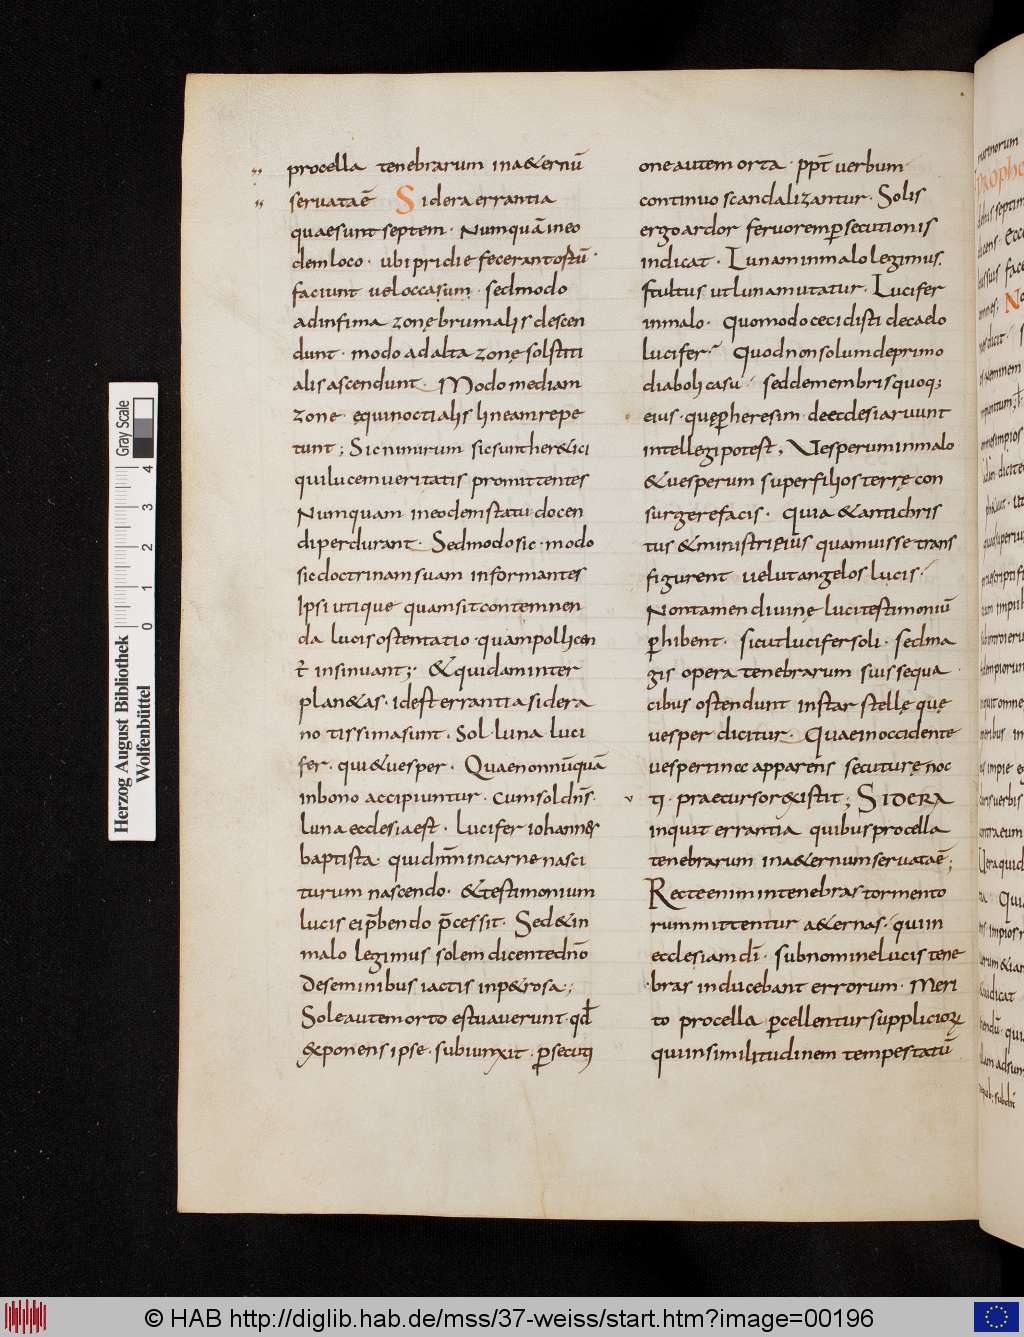 procella tenebrarum in a&ernū
seruata ē Sidera errantia
quae sunt septem · Numquā in eo
dem loco · ubi pridie fecerant ostū ·
faciunt uel occasum · sed modo
ad infima zonę brumalis descen
dunt · modo ad alta zonę solstiti
alis ascendunt · Modo mediam
zone ęquinoctialis lineam repe
tunt ; Sic nimirum sic sunt her&ici
qui lucem ueritatis promittentes
Numquam in eodem statu docen
di perdurant · Sed modo sic · modo
sic doctrinam suam informantes
Ipsi utique quam sit contemnen
da lucis ostentatio · quam pollicen
t᷑ insinuant ; · & quidam inter
plan&as · id est errantia sidera
notissima sunt · Sol · luna luci
fer · qui & uesper · Quae nonnūquā
in bono accipiuntur · Cum sol dn̄s ·
luna ecclesia est · lucifer iohannes
baptista · qui dn̄m in carne nasci
turum nascendo · & testimonium
lucis ei p̄bendo p̄cessit · Sed & in
malo legimus solem dicente dn̄o
De seminibus iactis in p&rosa ;
Sole autem orto estuauerunt · qđ
exponens ipse · subiunxit · ꝑsecuti
one autem orta · ppt̄ uerbum
continuo scandalizantur · Solis
ergo ardor feruorem ꝑsecutionis
indicat · Lunam in malo legimus ·
stultus ut luna mutatur · Lucifer
in malo · Quomodo cecidisti de caelo
lucifer · Quod non solum de primo
diaboli casu · sed de membris quoq;
eius · quę ꝑ heresim de ecclesia ruunt
intellegi potest , Uesperum in malo
& uesperum super filios terrę con
surgere facis · Quia & antichris
tus & ministri eius quamuis se trans
figurent uelut angelos lucis ·
Non tamen diuinę luci testimoniū
ꝑhibent · sicut lucifer soli · sed ma
gis opera tenebrarum suis sequa
cibus ostendunt instar stellę quę
uesper dicitur · Quae in occidente
uespertino c apparens secuturę noc
ti · praecursor existit ; SIDERA
inquit errantia quibus procella
tenebrarum in a&ernum seruata ē ;
Recte enim in tenebras tormento
rum mittentur a&ernas · qui in
ecclesiam dī · sub nomine lucis tene
bras inducebant errorum · Meri
to procella ꝑcellentur suppliciorꝝ
qui in similitudinem tempestatū
Herzog August Bibliothek
Wolfenbüttel
0 1 2 3 4
Gray Scale
© HAB http://diglib.hab.de/mss/37-weiss/start.htm?image=00196